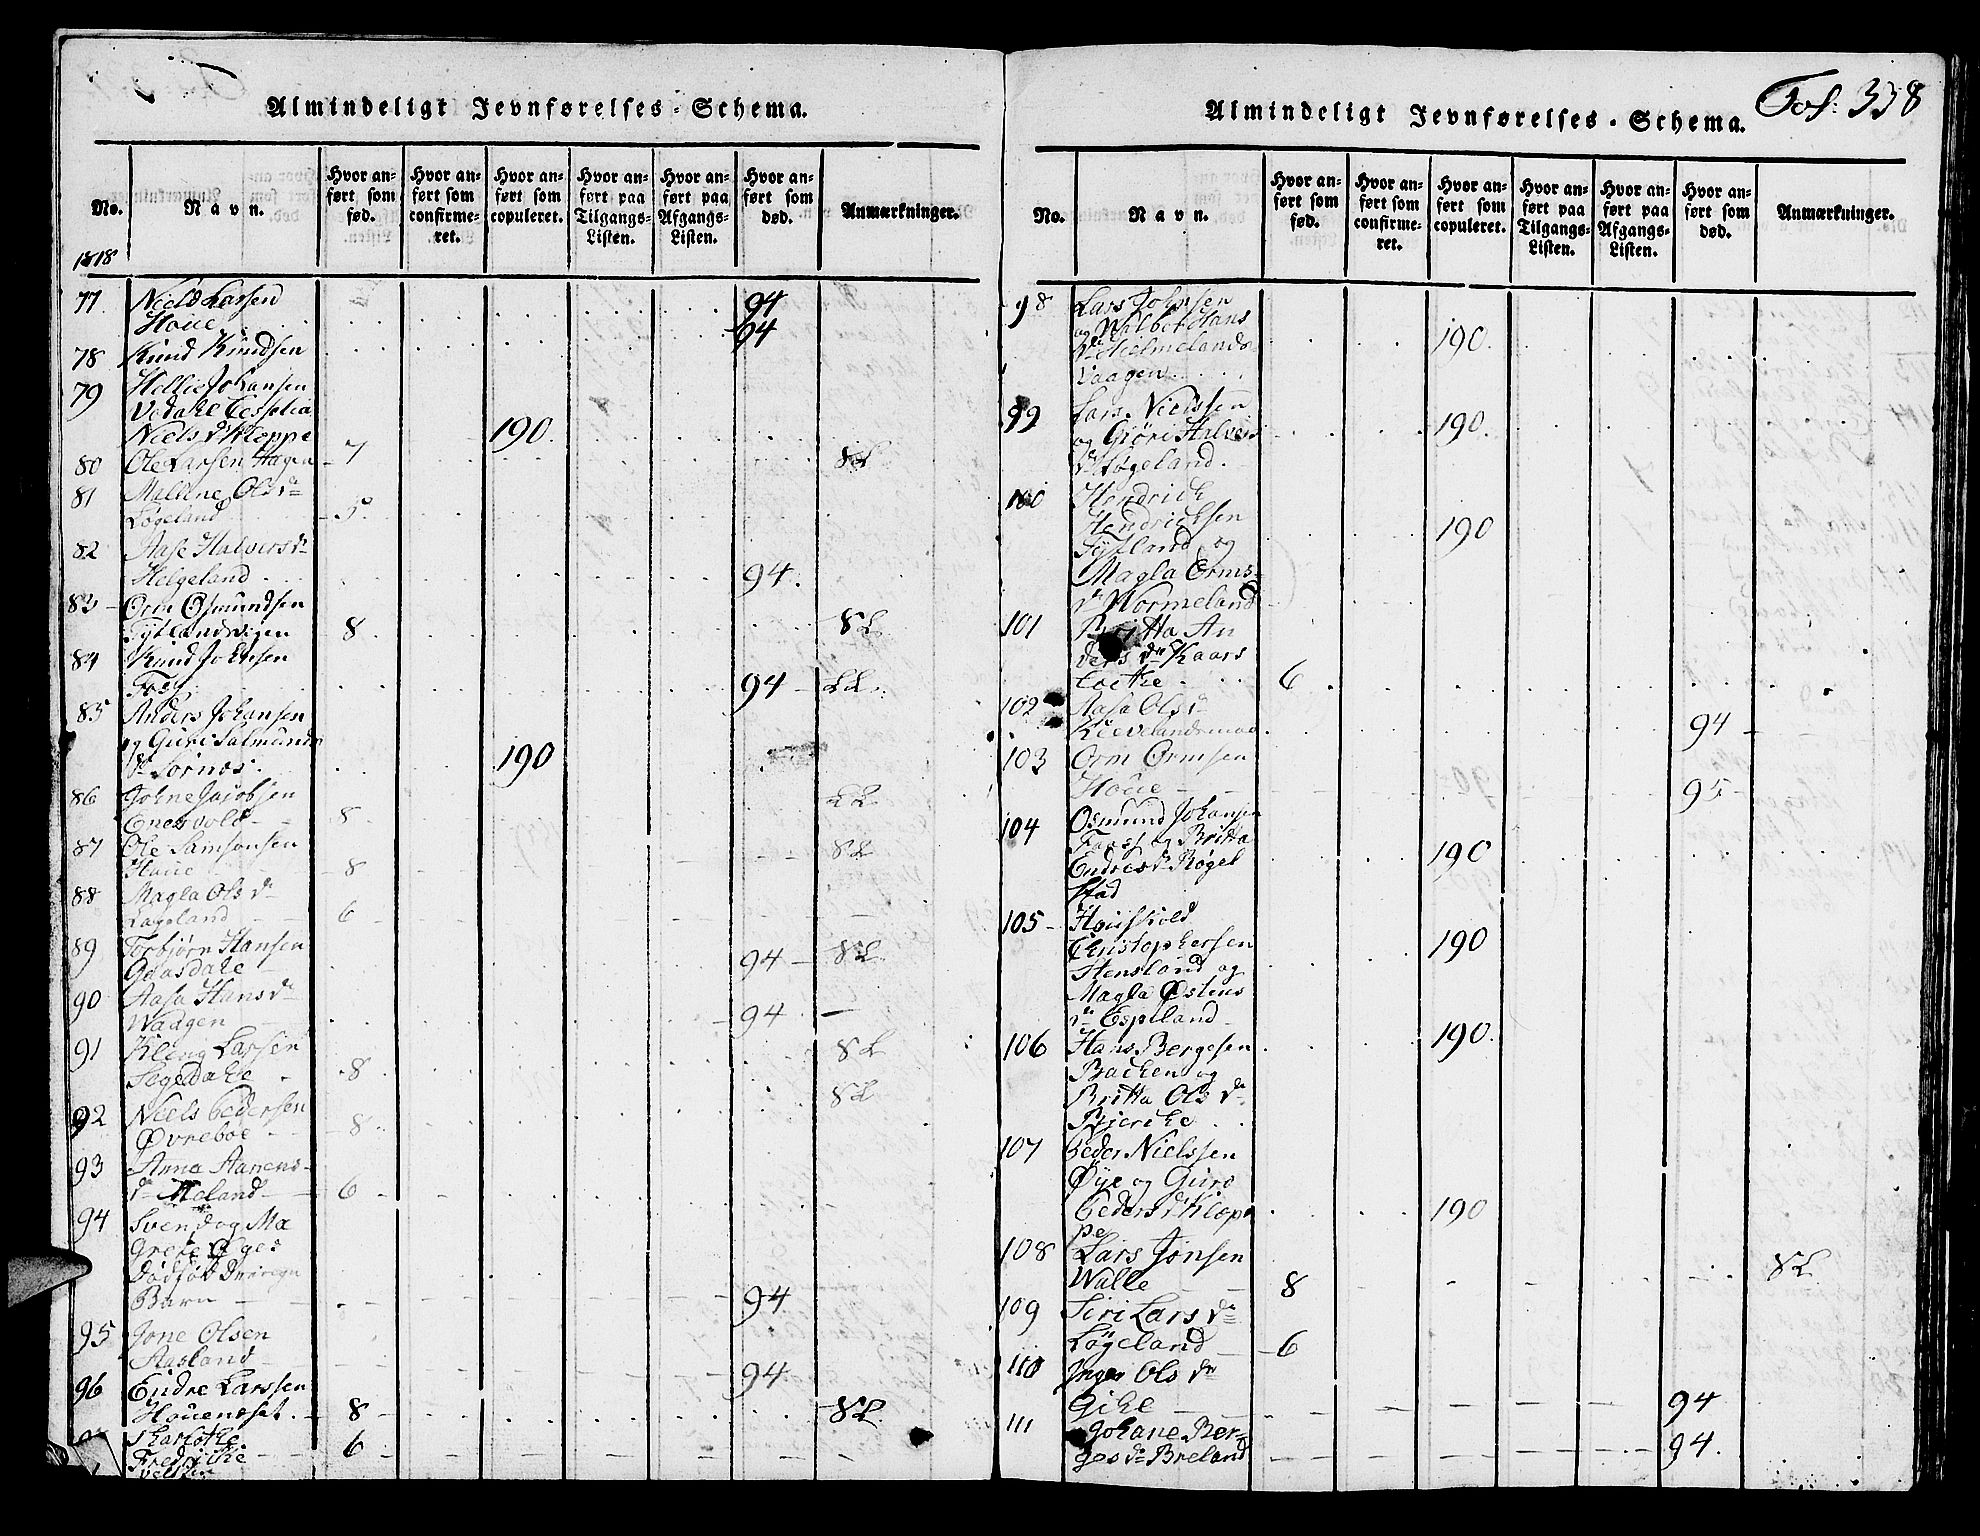 Almindeligt Jevnførelses-Schema.
No.
Navn.
Hvor anført som fød.
Hvor anført som confirmeret.
Hvor anført som copuleret.
Hvor anført paa Tilgangs-Listen.
Hvor anført paa Afgangs-Listen.
Hvor anført som død.
Anmærkninger.
1818
77 Niels Larsen 94
Houe
78 Knud Knudsen 94
79 Hellie Johansen
Niels dr Kleppe 190.
80 Ole Larsen Hagen 7 8L
81 Mallene Ols dr
Løgeland 5.
82 Aase Halvers dr
Helgeland 94.
83 Orm Osmundsen
Tytlandsvigen 8. 8L
84 Knud Johnsen
94 LL.
85 Anders Johansen
og Guri Salmunds
dr Sornæs. 190
86 Johne Jacobsen LL.
Enesvold 8.
87 Ole Samsonsen 8L
Houe 8
88 Magla Ols dr
Løgeland 6
89 Torbjørn Hansen 8L
Gaasdahe 94
90 Aasa Hans dr
Waagen 94
91 Kleng Larsen 8L
8
92 Niels Pedersen 8L
Øvreboe 8
93 Anna Aanens
dr Meland 6
94 Svend og Ma
Grete
Barn 94
95 Jone Olsen
Aasland 94
96 Endre Larssen
Houenæset. 8 8L
Fredrikke 6
Almindeligt Jevnførelses-Schema.
Fol: 338
No.
Navn.
Hvor anført som fød.
Hvor anført som confirmeret.
Hvor anført som copuleret.
Hvor anført paa Tilgangs-Listen.
Hvor anført paa Afgangs-Listen.
Hvor anført som død.
Anmærkninger.
98 Lars Johnsen
og Walbor Hans
dr Hielmelands 190.
Vaagen
99 Lars Nielssen
og Giøri Halvers 190.
dr Løgeland.
100 Hendrich
Hendrichsen 190
Tytland og
Magla Orms
dr Wormeland
101 Britta An
ders dr Kaars
6
102 Aasa Ols dr
94
103 Orm Ormsen
Houe 95
104 Osmund Johansen
og Britta 190
Endres dr Røgel
stad
105
Christophersen 190
Stensland og
Magla Østens
dr Espeland
106 Hans Bergesen 190.
Backen og
Britta Ols dr
Bjercke
107 Peder Nielssen
Øye og Guro
Peders dr Klep 190
pe
108 Lars Jonsen 8L
Walle 8
109 Siri Lars dr
Løgeland 6
110 Inger Ols dr
94
111 Johane Ber
ges dr Breland 94.